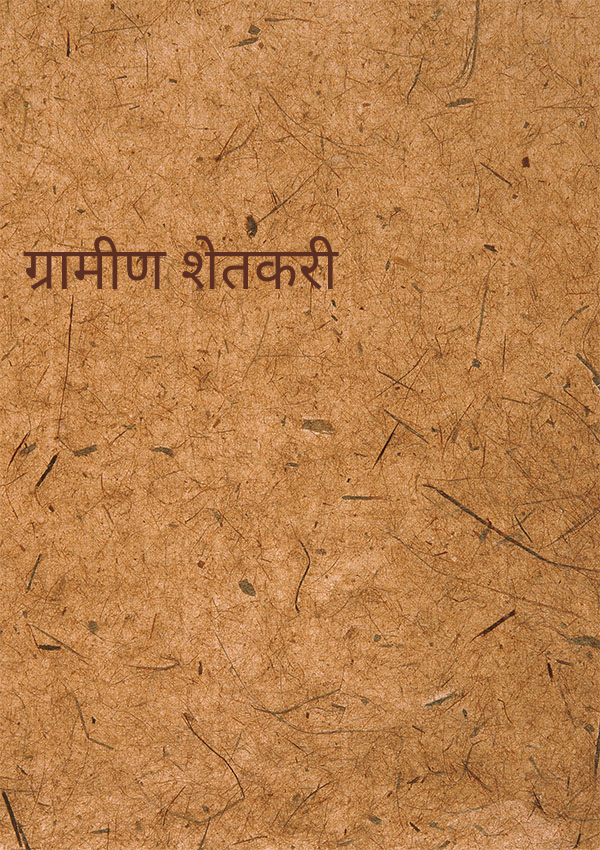 ग्रामीण शेतकरी